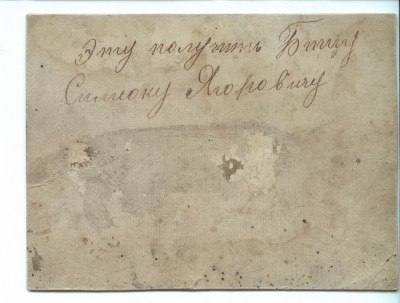 Эту получить Бтцу
Симиоку Яюровичу